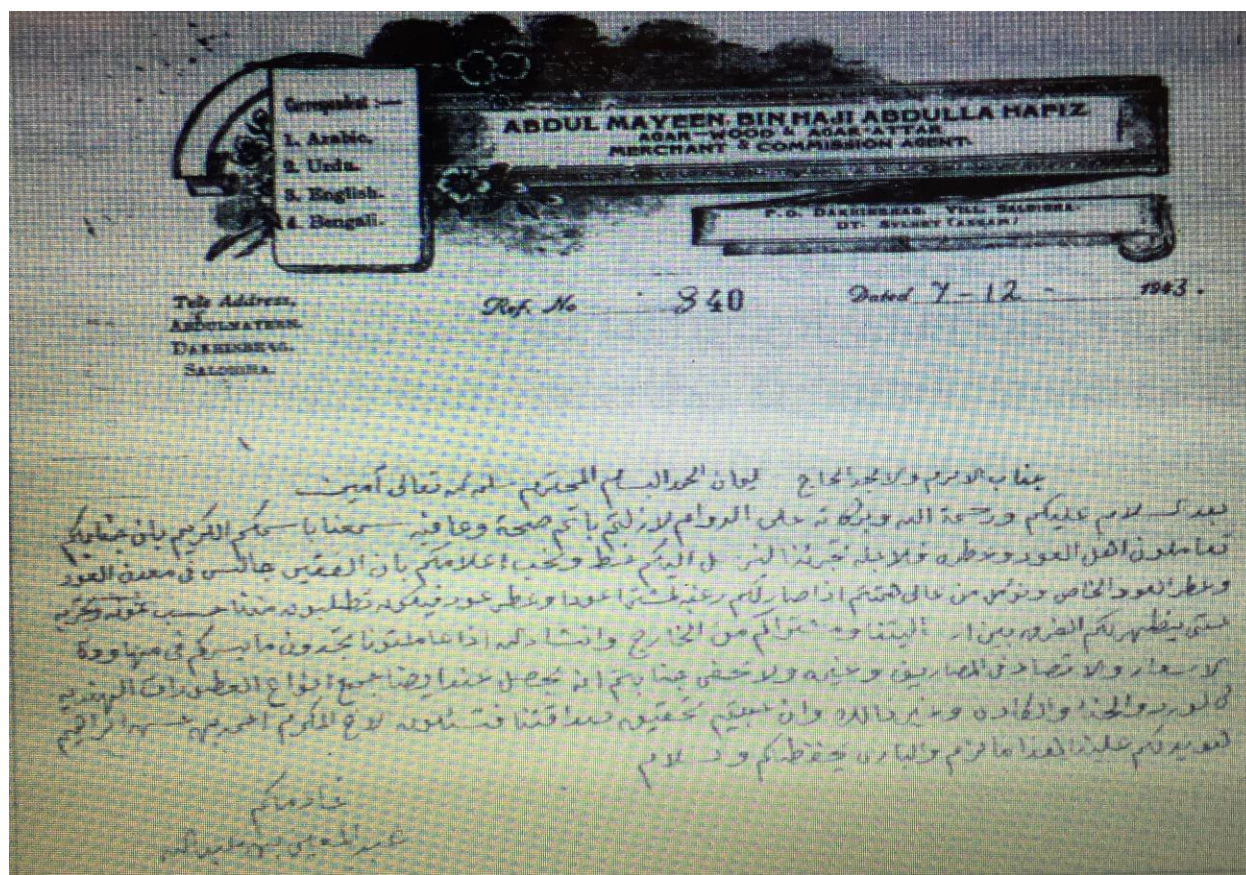 Correspondent :—
1. Arabic.
2. Urdu.
3. English.
4. Bengali.
ABDUL MAYEEN BIN HAJI ABDULLA HAFIZ
AGAR-WOOD & AGAR-ATTAR
MERCHANT & COMMISSION AGENT.
P.O. DAKHINBHAG. VILL. SALDIGHA.
DT. SYLHET (ASSAM)
Tele Address,
ABDULMAYEEN.
DAKHINBHAG.
SALDIGHA.
Ref. No 840
Dated 7-12- 1943.
جناب الاكرم ولامجد الحاج المحترم سلمه الله تعالى آمين
بعد السلام عليكم ورحمة الله وبركاته على الدوام لازلتم باتم صحة وعافيه سمعنا باسمكم الكريم بان جنابكم
تعاملون اهل العود وعطره اليكم ونحب اعلامكم بان الفقير جالس في معدن العود
وعطر العود الخاص ونؤمل من عالى همتكم اذا صار لكم رغبه عودا وعطر عود تطلبونه مننا حسب
حتى يظهر لكم الفرق بين من الخارج وانشاء الله اذا عاملتونا تجدون مايسركم في
الاسعار والاقتصاد في المصاريف وغيره ولا تخفى جنابكم انه يحصل عندنا ايضا جميع انواع العطورات الهنديه
كالورد والحنا والكادى وغير ذالك وان تحقيق صداقتنا المكرم
هذا مالزم والبارى يحفظكم والسلام
خادمكم
عبد المعين بن عبد الله